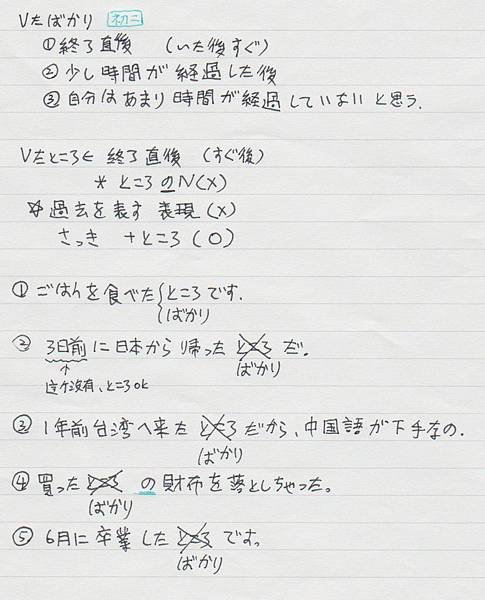 Vたばかり 初二
①終了直後 (いた後すぐ)
②少し時間が経過した後
③自分はあまり時間が経過していないと思う.
Vたところ∈ 終了直後 (すぐ後)
* ところのN(×)
☆過去を表す 表現(×)
さっき +ところ(○)
①ごはんを食べた{ところです.
ばかり
②3日前に日本から帰ったところだ.
ばかり
↑
這个没有、ところok
③1年前台湾へ来たところだから、中国語が下手なの.
ばかり
④買ったところ の財布を落としちゃった。
ばかり
⑤6月に卒業したところです。
ばかり